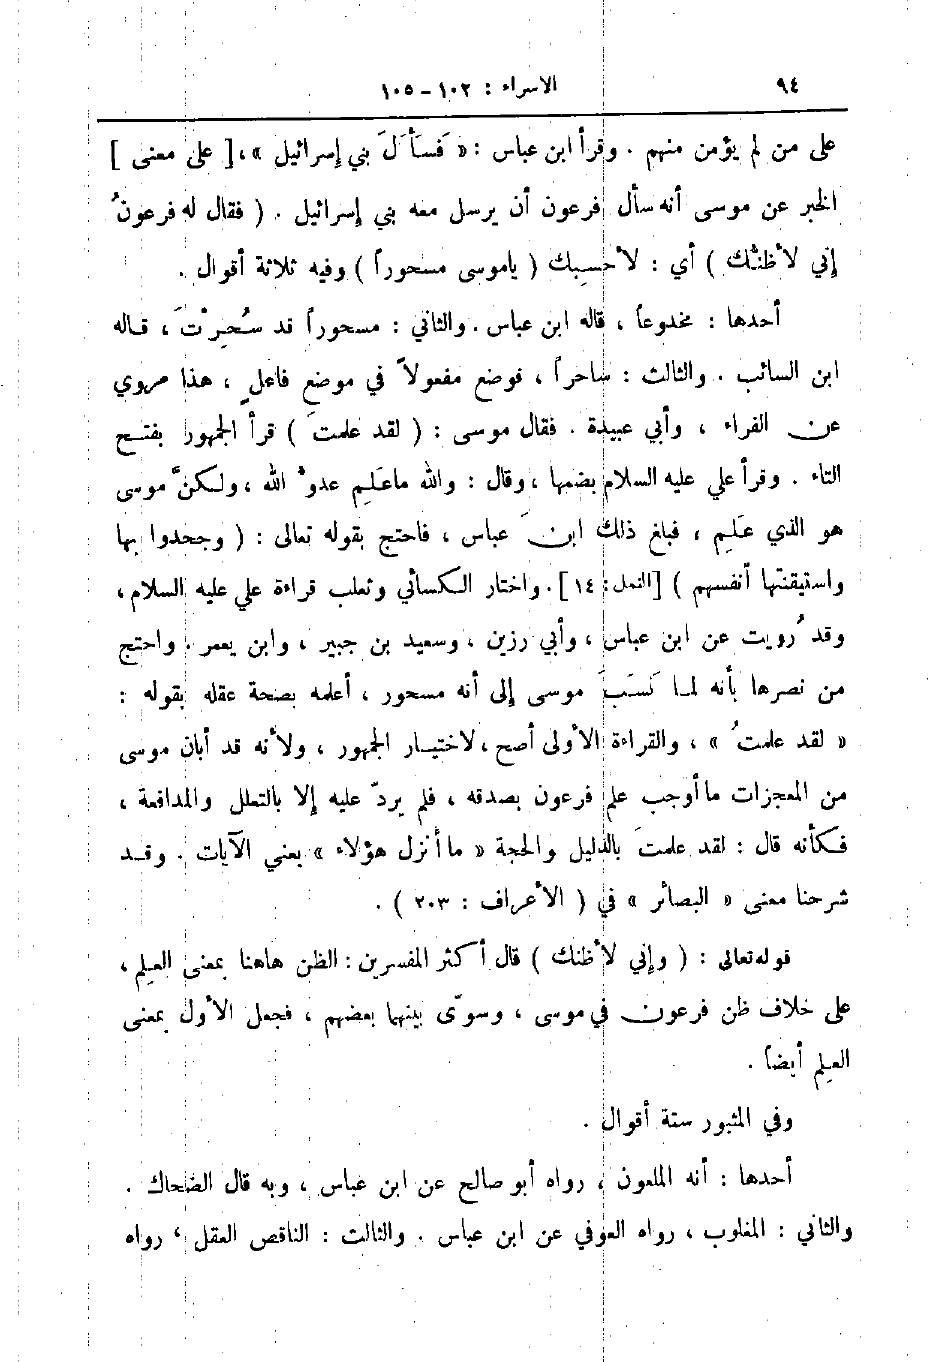 ٩٤ الاسراء : ١٠٢ – ١٠٥
على من لم يؤمن منهم . وقرأ ابن عباس : « فَسَأَلَ بني إسرائيل » ، [ على معنى ]
الخبر عن موسى أنه سأل فرعون أن يرسل معه بني إسرائيل . ( فقال له فرعونُ
إني لأظنُّك ) أي : لأحسِبك ( ياموسى مسحوراً ) وفيه ثلاثة أقوال .
أحدها : مخدوعاً ، قاله ابن عباس . والثاني : مسحوراً قد سُحِرْتَ ، قاله
ابن السائب . والثالث : ساحراً ، فوضع مفعولاً في موضع فاعلٍ ، هذا مروي
عن الفراء ، وأبي عبيدة . فقال موسى : ( لقد علمتَ ) قرأ الجمهور بفتح
التاء . وقرأ علي عليه السلام بضمها ، وقال : والله ماعَلِم عدوُّ الله ، ولكنَّ موسى
هو الذي عَلِم ، فبلغ ذلك ابنَ عباس ، فاحتج بقوله تعالى : ( وجحدوا بها
واستيقنتها أنفسهم ) [النمل: ١٤] . واختار الكسائي وثعلب قراءة علي عليه السلام ،
وقد رُويت عن ابن عباس ، وأبي رزين ، وسعيد بن جبير ، وابن يعمر . واحتج
من نصرها بأنه لما نَسَبَ موسى إلى أنه مسحور ، أعلمه بصحة عقله بقوله :
« لقد علمتُ » ، والقراءة الأولى أصح ، لاختيار الجمهور ، ولأنه قد أبان موسى
من المعجزات ما أوجب علم فرعون بصدقه ، فلم يردّ عليه إلا بالتعلل والمدافعة ،
فكأنه قال : لقد علمتَ بالدليل والحجة « ما أنزل هؤلاء » يعني الآيات . وقد
شرحنا معنى « البصائر » في ( الأعراف : ٢٠٣ ) .
قوله تعالى : ( وإني لأظنك ) قال أكثر المفسرين : الظن هاهنا بمعنى العلم ،
على خلاف ظن فرعون في موسى ، وسوّى بينهما بعضهم ، فجعل الأول بمعنى
العلم أيضاً .
وفي المثبور ستة أقوال .
أحدها : أنه الملعون ، رواه أبو صالح عن ابن عباس ، وبه قال الضحاك .
والثاني : المغلوب ، رواه العوفي عن ابن عباس . والثالث : الناقص العقل ، رواه